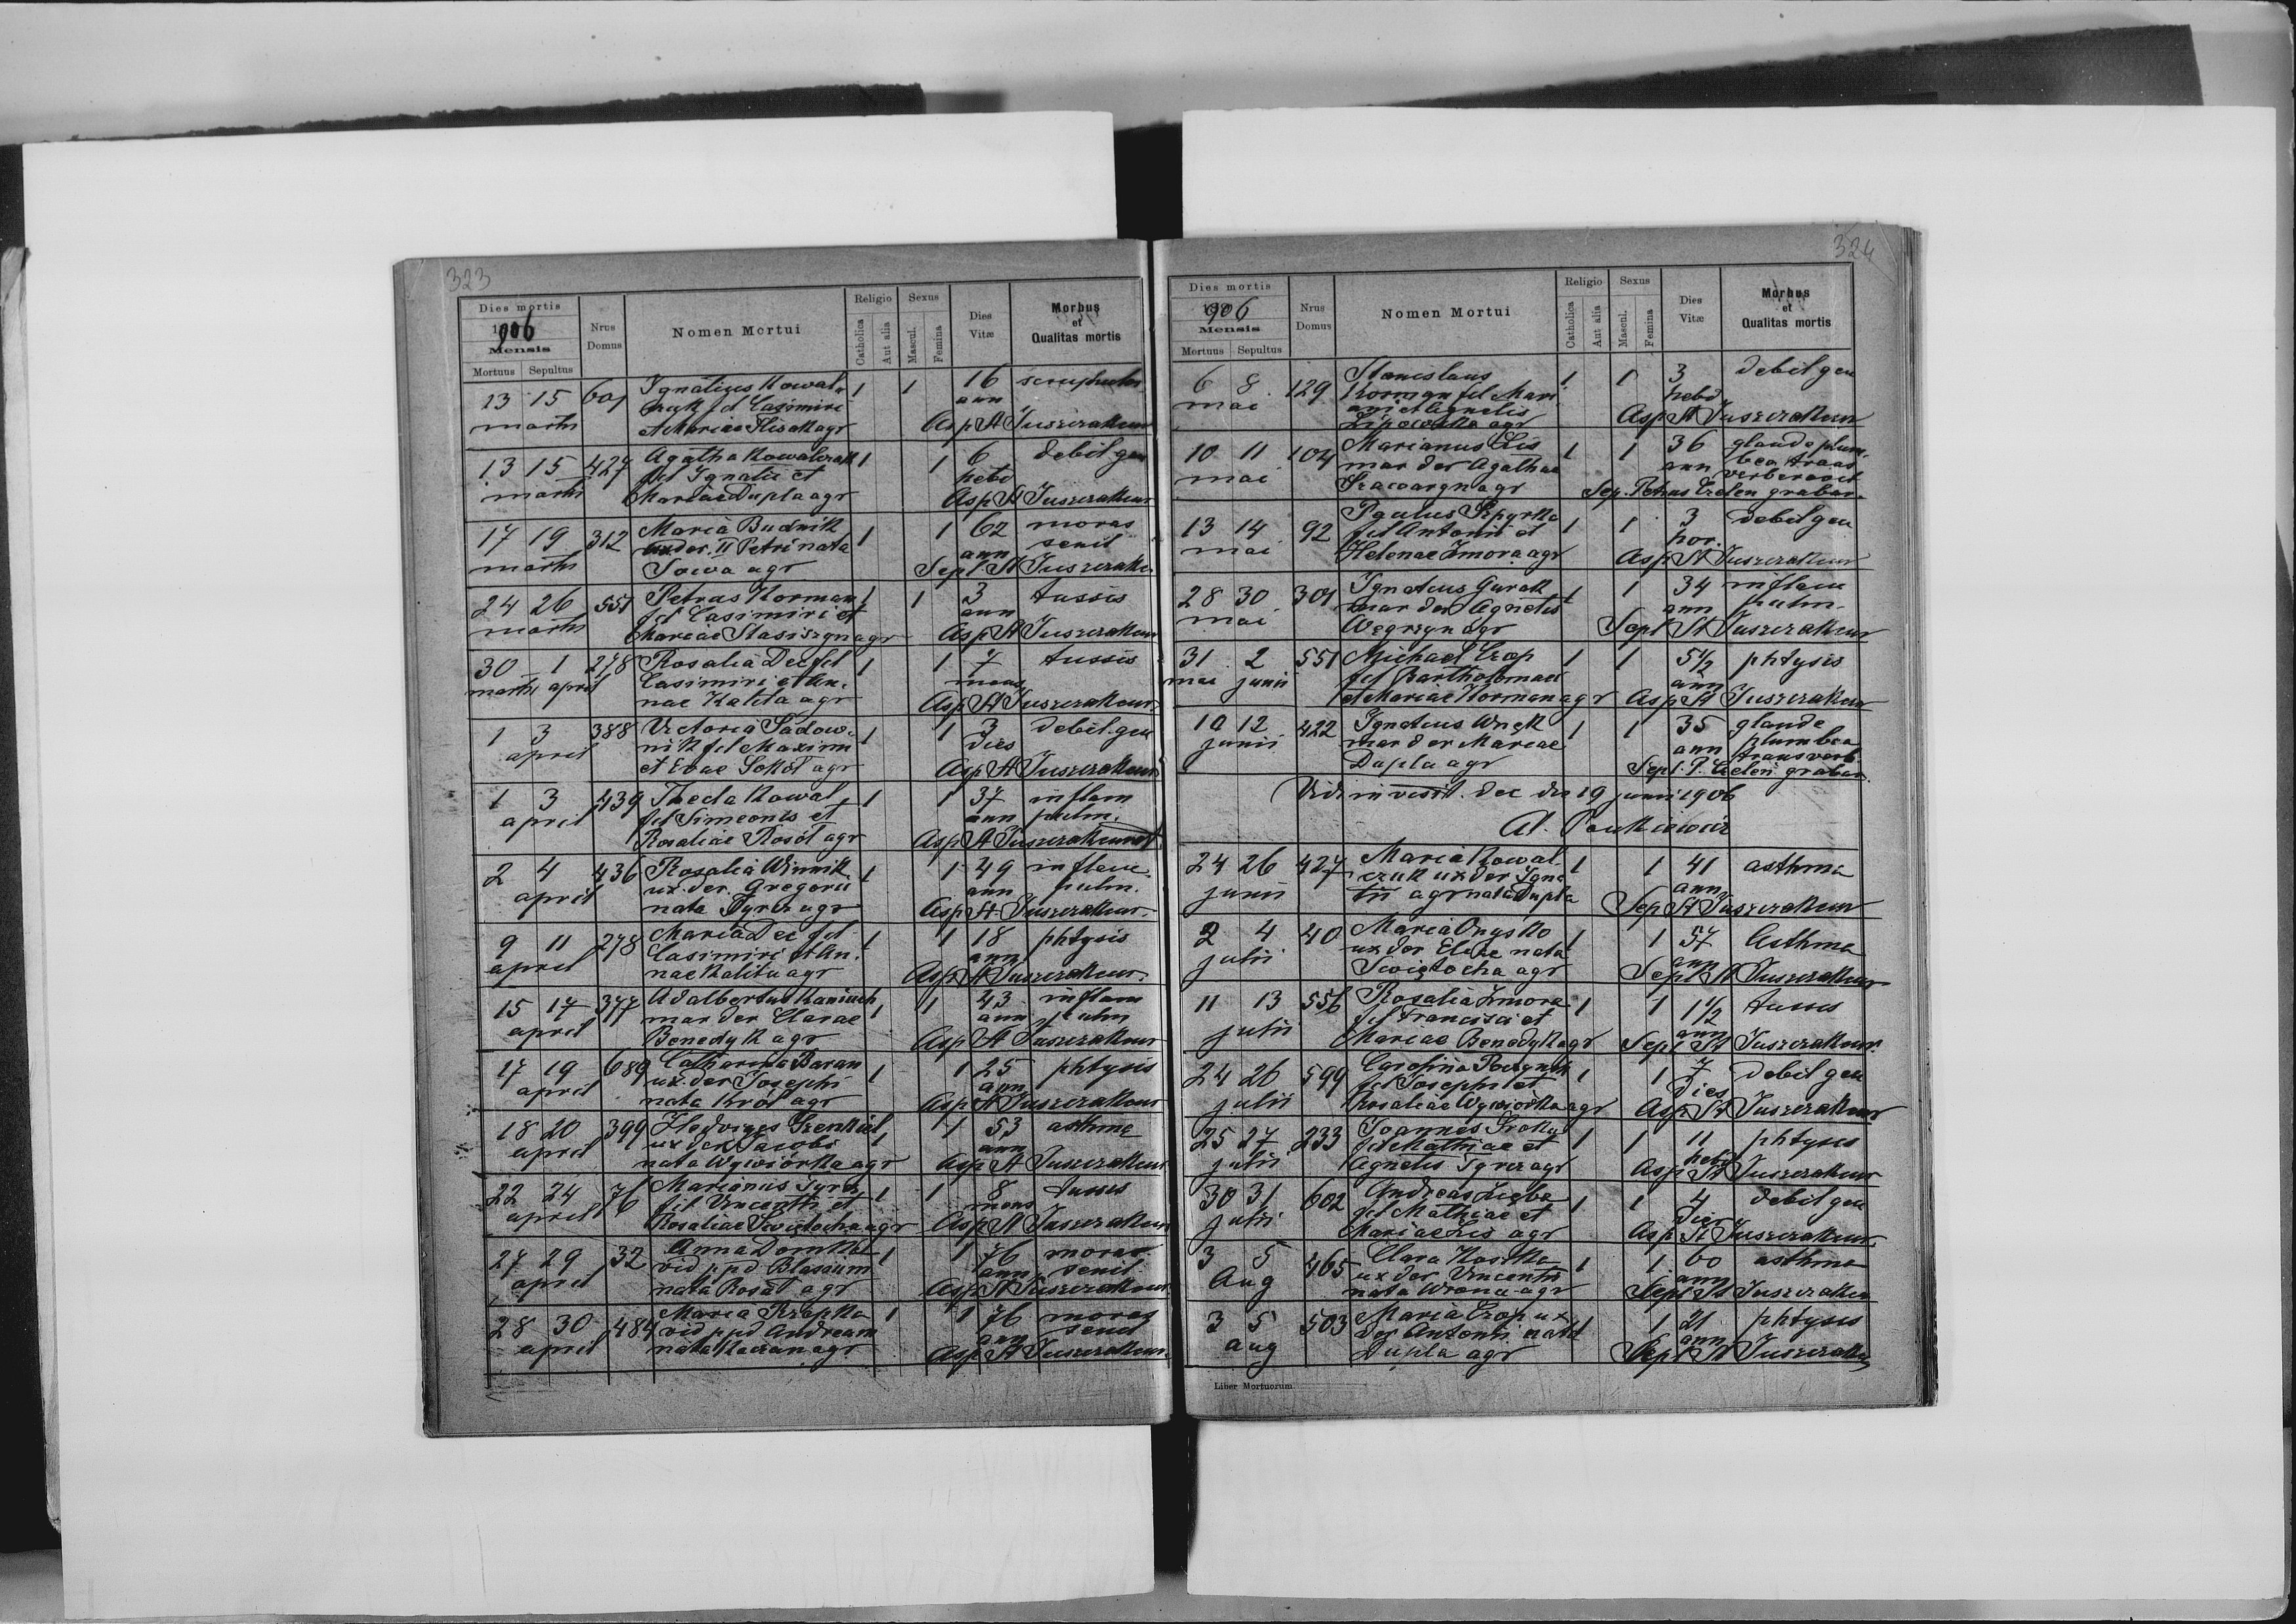 323
Dies mortis
1906
Mensis
Mortuus Sepultus
Nrus Domus
Nomen Mortui
Religio
Catholica
Aut alia
Sexus
Mascul.
Femina
Dies Vitæ
Morbus et Qualitas mortis
13 15 601 Ignatius Kowal 1 1 16
fil Casimiri ann
martii et Mariae Flisak agr Asp St Juszczak
13 15 427 Agatha Kowalczuk 1 1 6 debil gen
fil Ignatii et hebd
martii Mariae Dupla agr Asp St Juszczak
17 19 312 Maria Budnik 1 1 62 moras
uxder. II Petri nata ann senil
martii Sowa agr Sept St Juszczak
24 26 551 Petrus Korman 1 1 3 tussis
fil Casimiri et ann
martii Mariae Stasiszyn agr Asp St Juszczak
30 1 278 Rosalia Dec fil 1 1 7 tussis
martii april Casimiri et An- mens
nae Kalita agr Asp St Juszczak
1 3 388 Victoria Sadow- 1 1 3 debil. gen
april nik fil Maximi dies
et Evae Sokół agr Asp St Juszczak
1 3 439 Thecla Kowal 1 1 37 inflam
april fil Simeonis et ann pulm.
Rosaliae Rosół agr Asp St Juszczak
2 4 436 Rosalia Winnik 1 1 49 inflam
april ux. der. Gregorii ann pulm.
nata Tyrcz agr Asp St. Juszczak
9 11 278 Maria Dec fil 1 1 18 phtysis
april Casimiri et An- ann
nae Kalita agr Asp St Juszczak
15 17 377 Adalbertus Kaniuch 1 1 43 inflam
april mar der Clarae ann pulm
Benedyk agr Asp St Juszczak
17 19 689 Catharina Baran 1 1 25 phtysis
april ux. der Josephi ann
nata Król agr Asp St Juszczak
18 20 399 Hedviges Grenkiel 1 1 53 asthma
april ux der Jacobi ann
nata Wywiórka agr Asp St Juszczak
22 24 76 Marianus Tyrcz 1 1 8 tussis
april fil Vincentii et mens
Rosaliae Swietocha agr Asp St Juszczak
27 29 32 Anna 1 1 76 moras
april vid p pd Blasium ann senil
nata Rosół agr Asp St Juszczak
28 30 484 Maria Rzepka 1 1 76 moras
april vid p pd Andream ann senil
nata agr Asp St Juszczak
324
Dies mortis
1906
Mensis
Mortuus Sepultus
Nrus Domus
Nomen Mortui
Religio
Catholica
Aut alia
Sexus
Mascul.
Femina
Dies Vitæ
Morbus et Qualitas mortis
6 8 129 Stanislaus 1 1 3 debil gen
mai Korman fil Mari- hebd
ani et Agnetis Asp St Juszczak
Lipowska agr
10 11 104 Marianus Lis 1 1 36 glande plum-
mai mar der Agathae ann bea trans
agr verberavit
Sep. Petrus grabar.
13 14 92 Paulus Szpyrka 1 1 3 debil gen
mai fil Antonii et hor.
Helenae Zmora agr Asp St Juszczak
28 30 301 Ignatius Gurak 1 1 34 inflam
mai mar der Agnetis ann pulm.
Węgrzyn agr Sept St Juszczak
31 2 551 Michael Czop 1 1 5½ phtysis
mai junii fil Bartholomaei ann
et Mariae Korman agr Asp St Juszczak
10 12 422 Ignatius Wnęk 1 1 35 glande
junii mar der Mariae ann plumbea
Dupla agr transverb
Sept. P. grabar.
Vidi in visit. dec die 19 junii 1906
24 26 427 Maria Kowal- 1 1 41 asthma
junii czuk ux der Igna- ann
tii agr nata Dupla Sep St Juszczak
2 4 40 Maria Onysko 1 1 57 Asthma
julii ux der Eliae nata ann
Swiętocha agr Sept St Juszczak
11 13 556 Rosalia Zmora 1 1 1½ tussis
julii fil Francisci et ann
Mariae Benedyk agr Sept St Juszczak
24 26 599 Carolina 1 1 7 debil gen
julii fil Josephi et dies
Rosaliae Wywiórka agr Asp St Juszczak
25 27 233 Joannes Sroka 1 1 11 phtysis
julii fil Mathiae et hebd
Agnetis Tyrcz agr Asp St Juszczak
30 31 602 Andreas Zięba 1 1 4 debil gen
julii fil Mathiae et dies
Mariae Lis agr Asp St Juszczak
3 5 465 Clara Kostka 1 1 60 asthma
Aug ux der Vincentii ann
nata Wrona agr Sept St Juszczak
3 5 503 Maria Czop ux 1 1 21 phtysis
aug der Antonii nata ann
Dupla agr Sept St Juszczak
Liber Mortuorum.